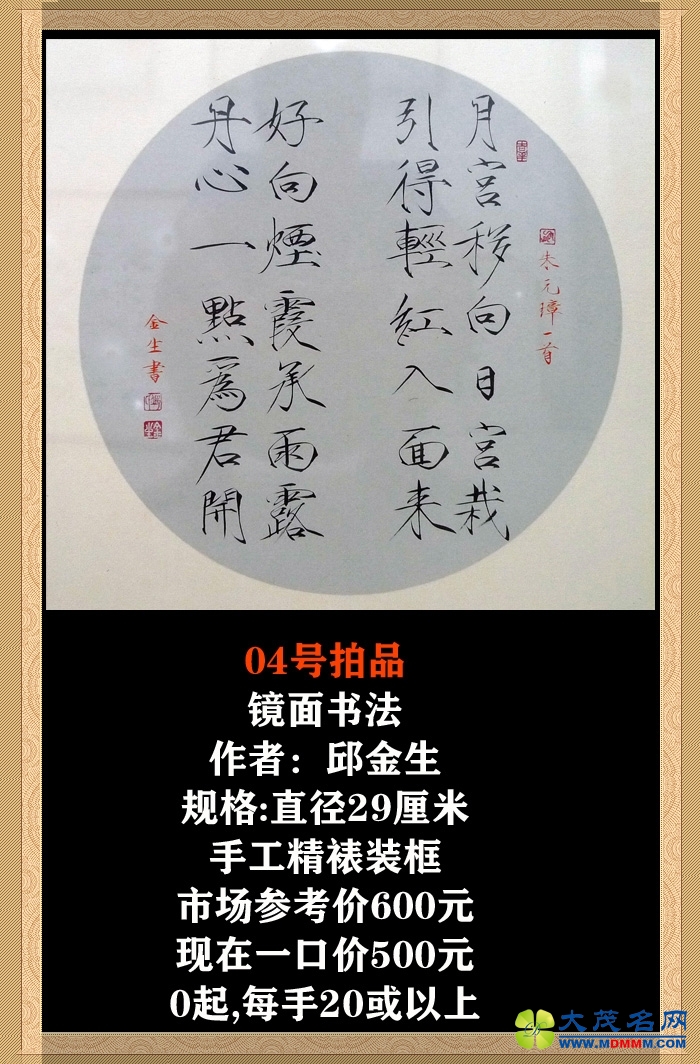 朱元璋一首
月宮移向日宮栽
引得輕紅入面来
好向煙霞承雨露
丹心一點爲君開
金生書
04号拍品
镜面书法
作者：邱金生
规格:直径29厘米
手工精裱装框
市场参考价600元
现在一口价500元
0起,每手20或以上
大茂名网
WWW.MDMMM.COM